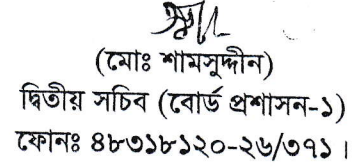 (মোঃ শামসুদ্দীন)
দ্বিতীয় সচিব (বোর্ড প্রশাসন-১)
ফোনঃ ৪৮৩১৮১২০-২৬/৩৭১।